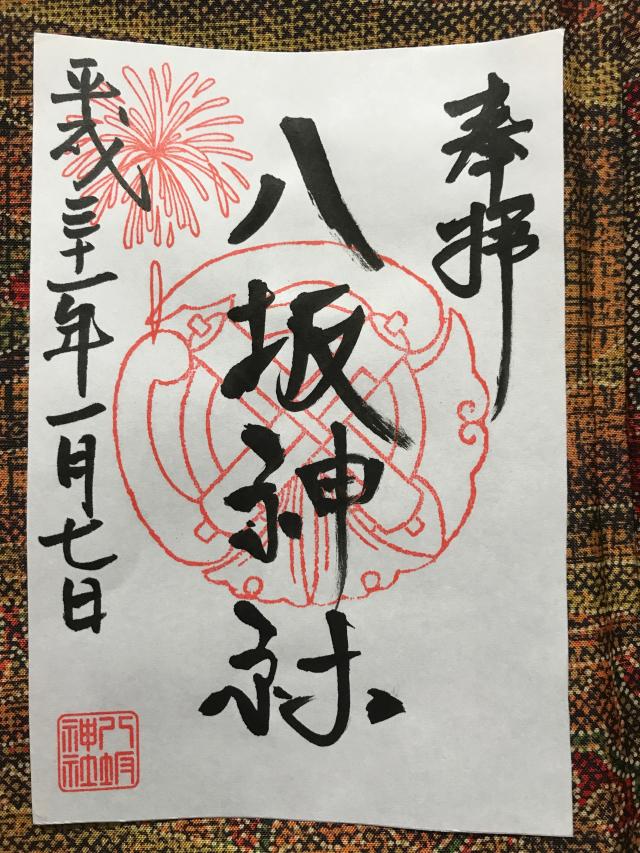 奉拝
八坂神社
平成三十一年一月七日
八坂
神社